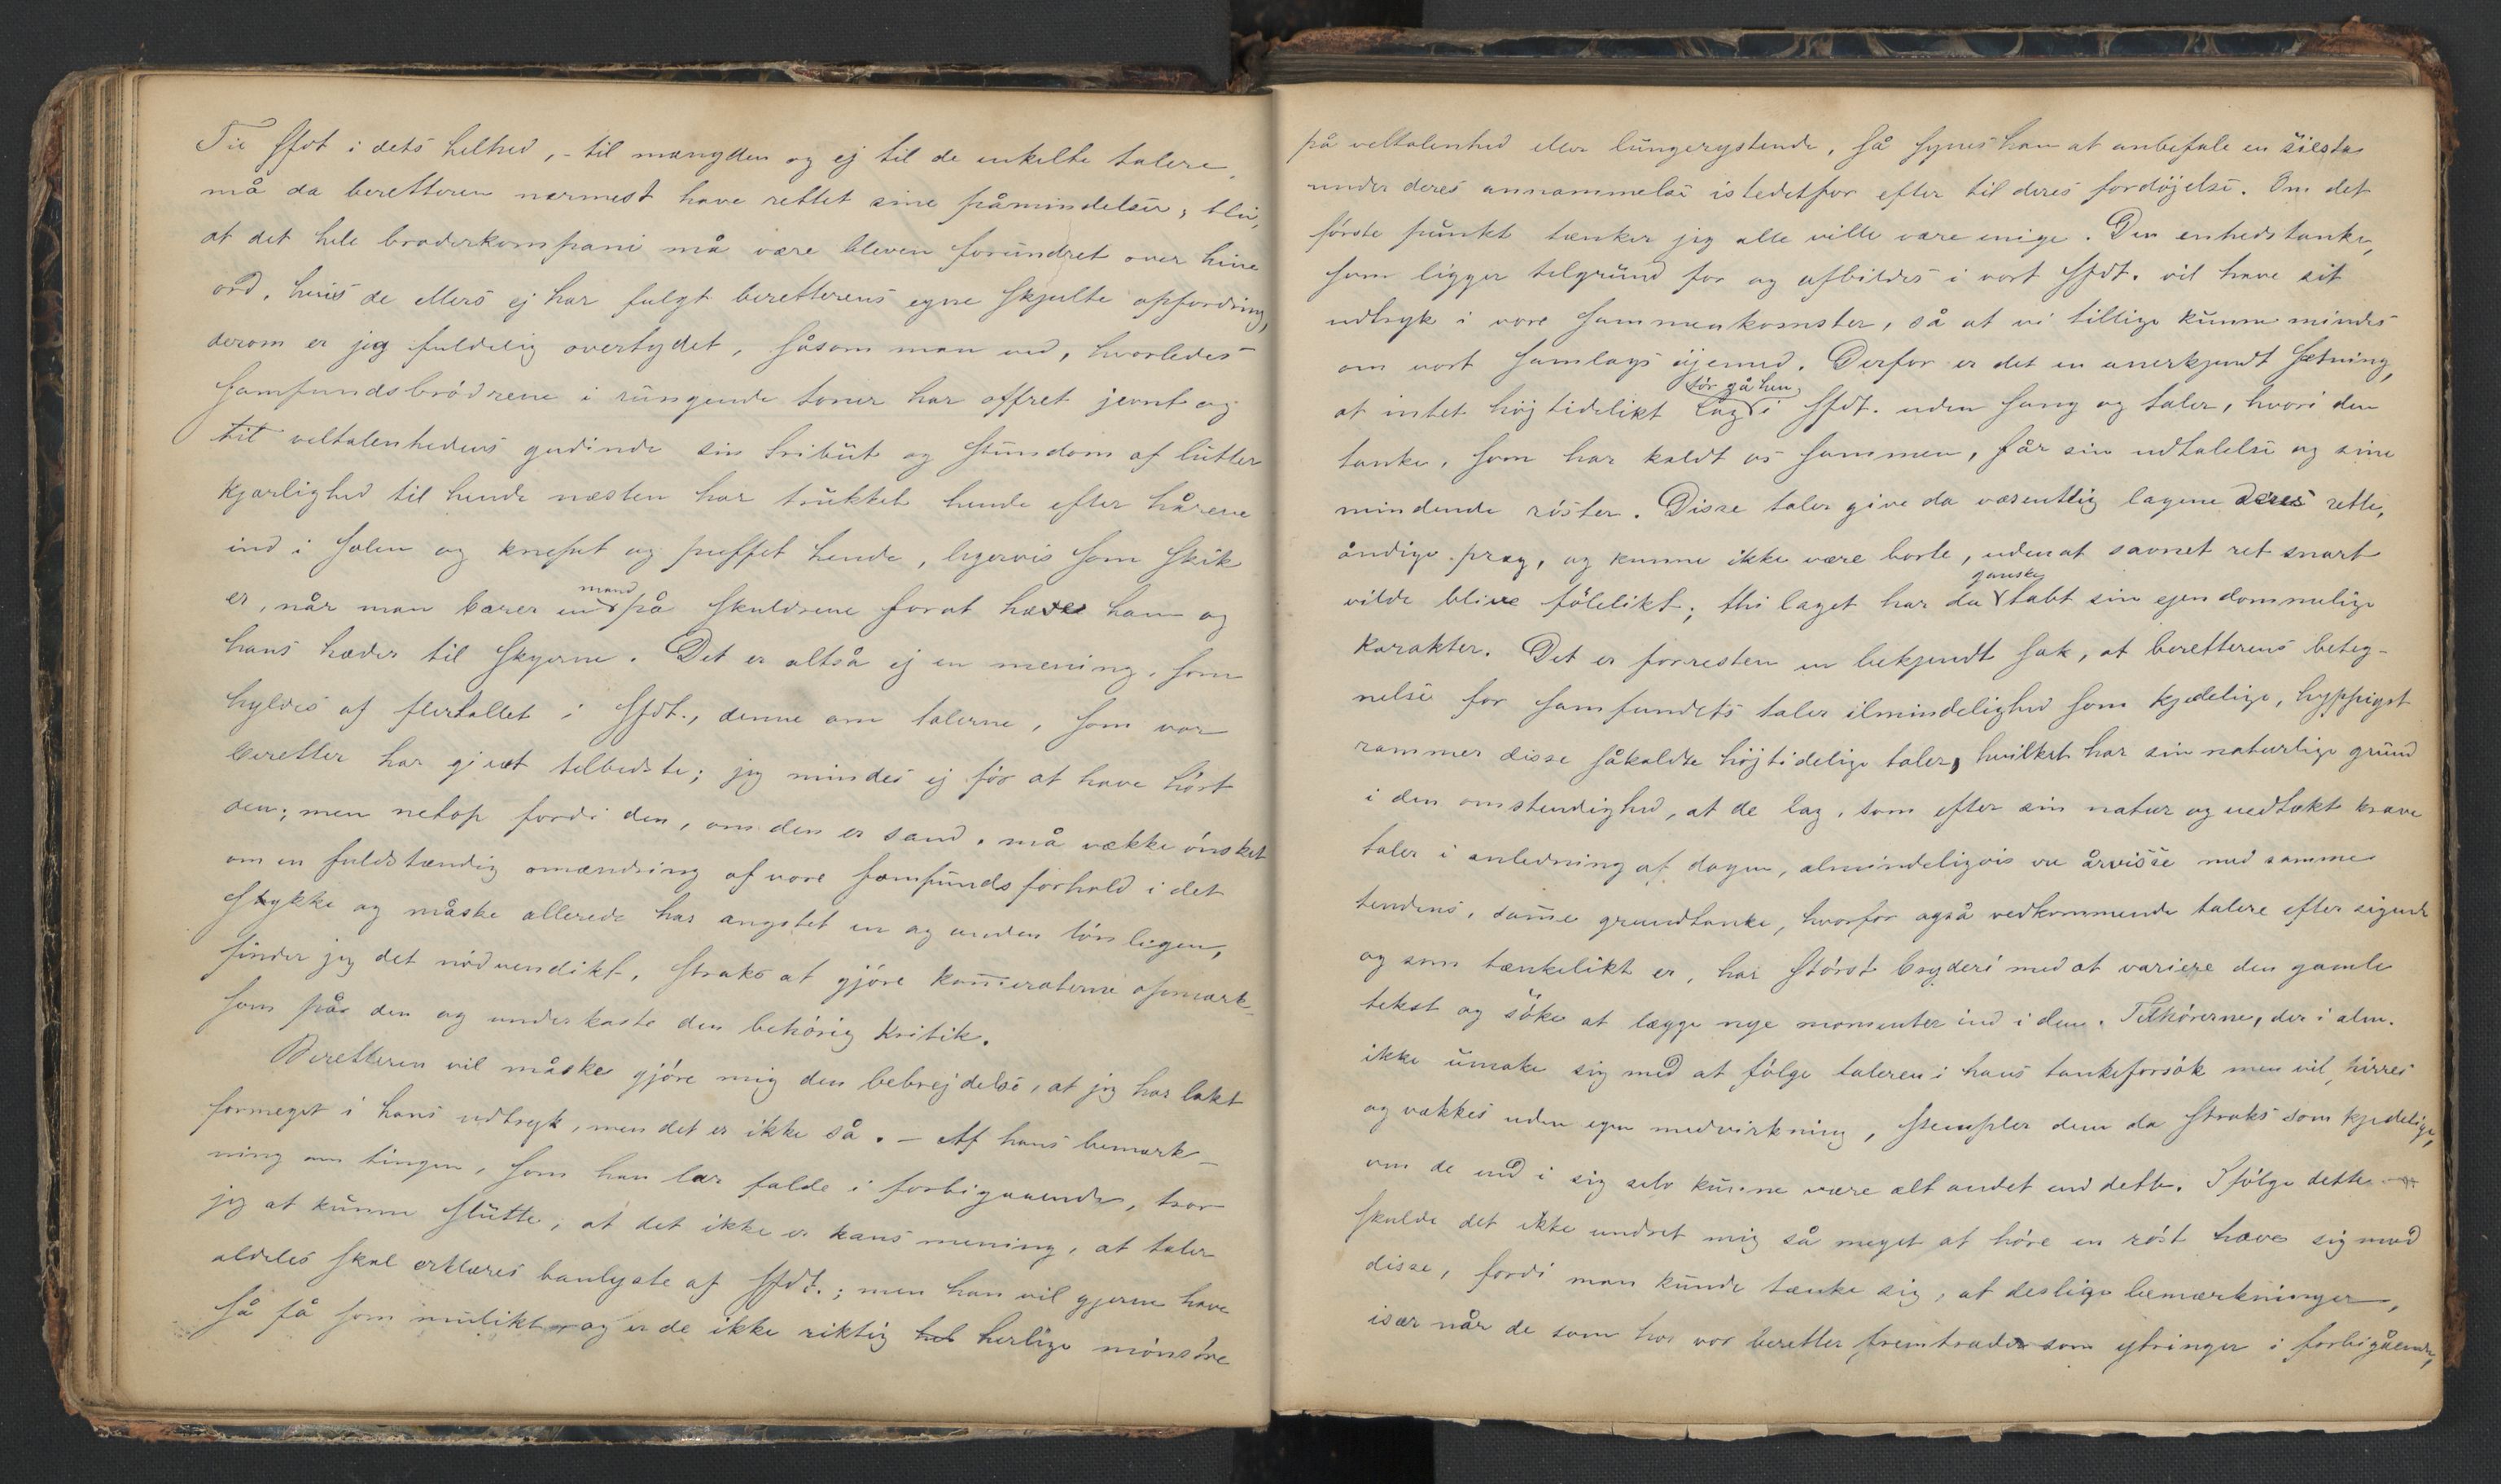 Til Sfdt i dets helhed, - til mængden og ej til de enkelte talere,
må da beretteren nærmest have rettet sine påmindelser;
at det hele broderkompani må være bleven forundret over hine
ord, hvis de ellers ej har fulgt beretterens egne skjulte opfordring,
derom er jeg fuldelig overtydet, såsom man ved, hvorledes
samfundsbrødrene i rungende toner har offret jevnt og
til veltalenhedens gudinde sin tribut og stundom af lutter
kjærlighed til hende næsten har trukket hende efter hårene
ind i salen og knepet og puffet hende, ligervis som skik
er, når man bærer en mand på skuldrene forat hæve ham og
hans hæder til skyerne. Det er altså ej en mening, som
hyldes af flertallet i Sfdt., denne om talerne, som vor
beretter har givet tilbedste; jeg mindes ej før at have hørt
den; men netop fordi den, om den er sand, må vække ønsket
om en fuldstændig omændring af vore samfundsforhold i det
stykke og måske allerede har ængstet en og anden lønligen,
finder jeg det nødvendikt, straks at gjøre kameraterne opmærk-
som på den og underkaste den behørig kritik.
Beretteren vil måske gjøre mig den bebrejdelse, at jeg har lakt
formeget i hans udtryk, men det er ikke så. - Af hans bemærk-
ning om tingen, som han lar falde i forbigaaende, tror
jeg at kunne slutte, at det ikke er hans mening, at taler
aldeles skal erklæres banlyste af Sfdt.; men han vil gjerne have
så få som mulikt og er de ikke riktig herlige mønstre
på veltalenhed eller lungerystende, så synes han at anbefale en siesta
under deres annammelse istedetfor efter til deres fordøjelse. Om det
første punkt tænker jeg alle ville være enige. Den enhedstanke,
som ligger tilgrund for og afbildes i vort Sfdt. vil have sit
udtryk i vore sammenkomster, så at vi tillige kunne mindes
om vort samlags øjemed. Derfor er det en anerkjendt sætning,
at intet højtidelikt lag tør gå hen i Sfdt. uden sang og taler, hvori den
tanke, som har kaldt os sammen, får sin udtalelse og sine
mindende røster. Disse taler give da væsentlig lagene deres rette,
åndige præg, og kunne ikke være borte, uden at savnet ret snart
vilde blive følelikt; thi laget har da ganske tabt sin ejendommelige
karakter. Det er forresten en bekjendt sak, at beretterens beteg-
nelse for samfundets taler ialmindelighed som kjedelige, hyppigst
rammer disse såkaldte højtidelige taler, hvilket har sin naturlige grund
i den omstendighed, at de lag, som efter sin natur og vedtækt kræve
taler i anledning af dagen, almindeligvis ere årvisse med samme
tendens, samme grundtanke, hvorfor også vedkommende talere efter sigende
og som tænkelikt er, har størst bryderi med at variere den gamle
tekst og søke at lægge nye momenter ind i den. Tilhørerne, der i alm.
ikke umake sig med at følge taleren i hans tankeforsøk men vil pirres
og vækkes uden egen medvirkning, stempler dem da straks som kjedelige,
om de end i sig selv kunne være alt andet end dette. Ifølge dette
skulde det ikke undret mig så meget at høre en røst hæve sig mod
disse, fordi man kunde tænke sig, at deslige bemærkninger,
især når de som hos vor beretter fremtræder som ytringer i forbigående,